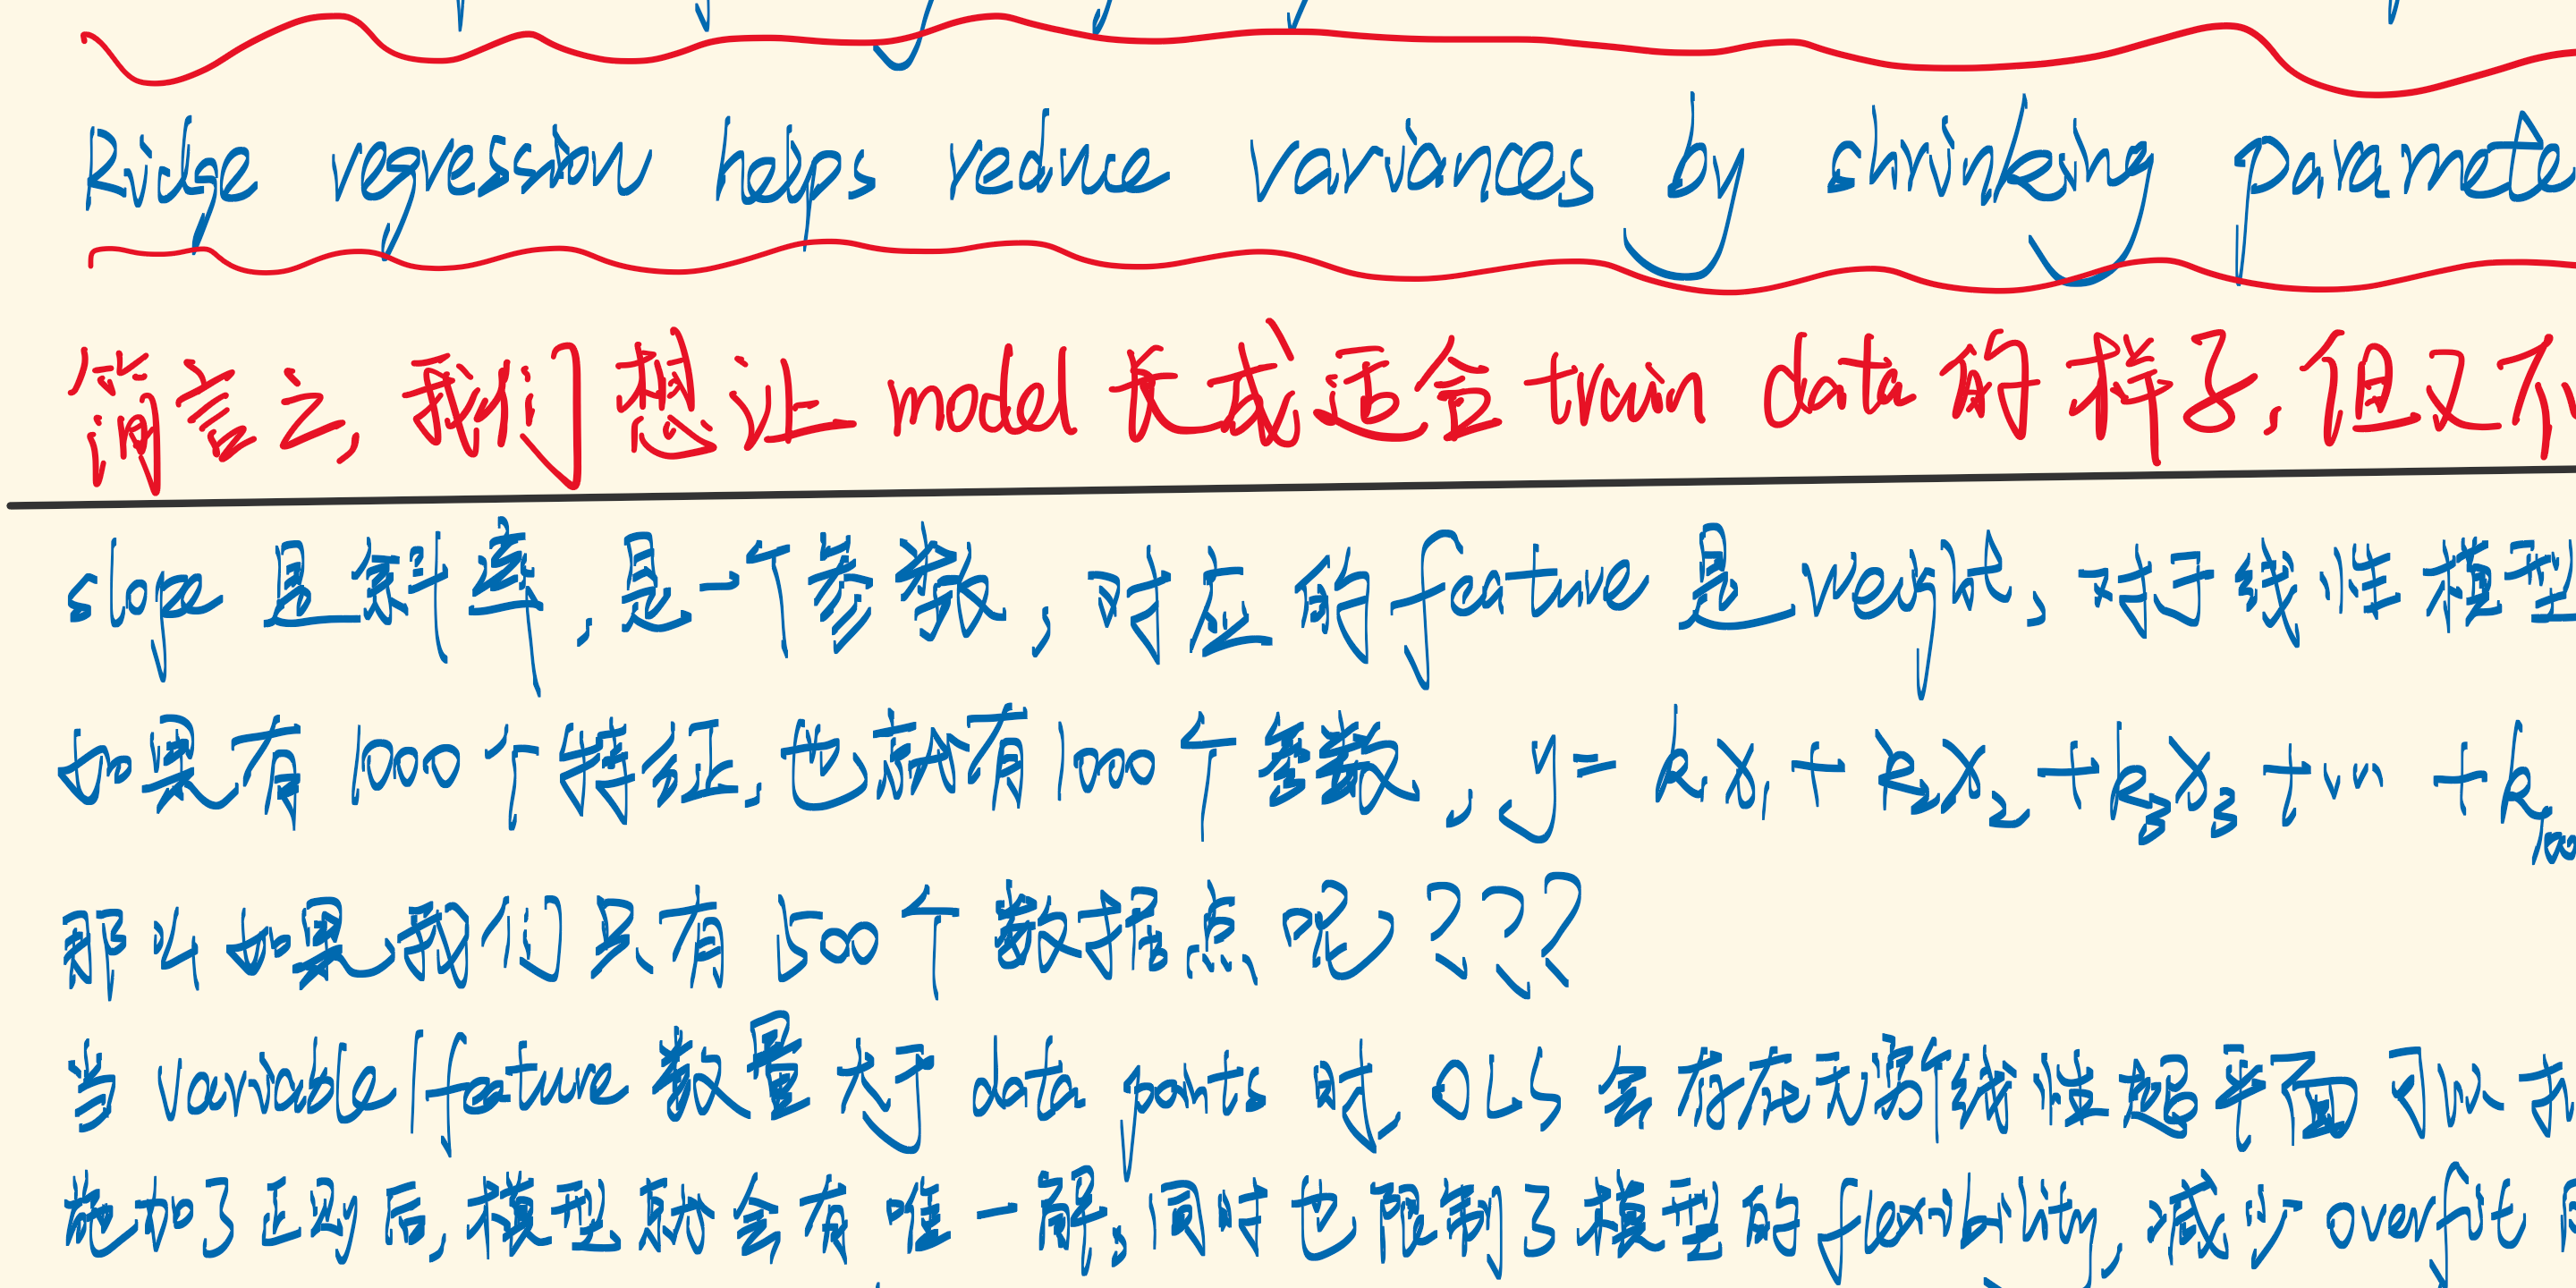 Ridge regression helps reduce variances by shrinking paramete
简言之, 我们想让 model 长成适合 train data 的样子, 但又不
slope 是斜率, 是一个参数, 对应的 feature 是 weight, 对于线性模型
如果有 1000 个特征, 也就有 1000 个参数, y = k₁x₁ + k₂x₂ + k₃x₃ + ... + k₁₀₀
那么如果我们只有 500 个数据点呢???
当 variable/feature 数量大于 data points 时, OLS 会存在无穷线性超平面可以
施加了正则后, 模型就会有唯一解, 同时也限制了模型的 flexibility, 减少 overfit